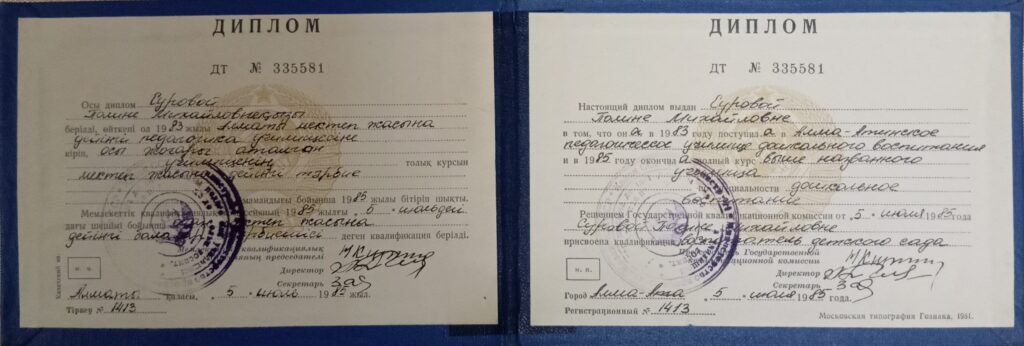 ДИПЛОМ
ДТ № 335581
Осы диплом Суровой
Полине Михайловнақызы
берілді, өйткені ол 1983 жылы Алматы мектеп жасына
дейінгі педагогика училищесіне
кіріп, осы жоғары аталған
училищенің толық курсын
мектеп жасына дейінгі тәрбие
мамандығы бойынша 1985 бітіріп шықты.
Мемлекеттік квалификациялық 1985 жылғы 5 июльдегі
дағы шешімі бойынша мектеп жасына
дейінгі бала деген квалификация берілді.
квалификациялық
ның председателі
м. о.
Директор
Секретарь
Алматы қаласы, 5 июль 1985 жыл.
Тіркеу № 1413
ДИПЛОМ
ДТ № 335581
Настоящий диплом выдан Суровой
Полине Михайловне
в том, что она в 1983 году поступила в Алма-Атинское
педагогическое училище дошкольного воспитания
и в 1985 году окончила полный курс выше названного
училища
по специальности дошкольное
воспитание
Решением Государственной квалификационной комиссии от 5 июля 1985 года
Суровой Полине Михайловне
присвоена квалификация воспитатель детского сада
Председатель Государственной
квалификационной комиссии
м. п.
Директор
Секретарь
Город Алма-Ата 5 июля 1985 года.
Регистрационный № 1413
Московская типография Гознака, 1981.